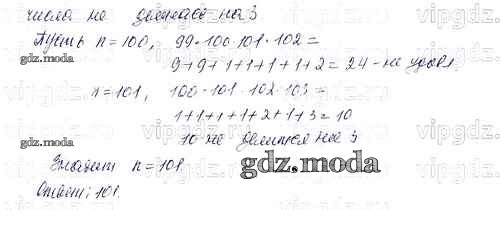 числа не делилось на 3
Пусть n = 100, 99·100·101·102 =
9+9+1+1+1+1+2 = 24 - не удовл.
n = 101, 100·101·102·103 =
1+1+1+1+2+1+3 = 10
10 не делится на 3
Значит n = 101
Ответ: 101.
gdz.moda
gdz.moda
gdz.moda
gdz.moda
vipgdz
vipgdz
vipgdz